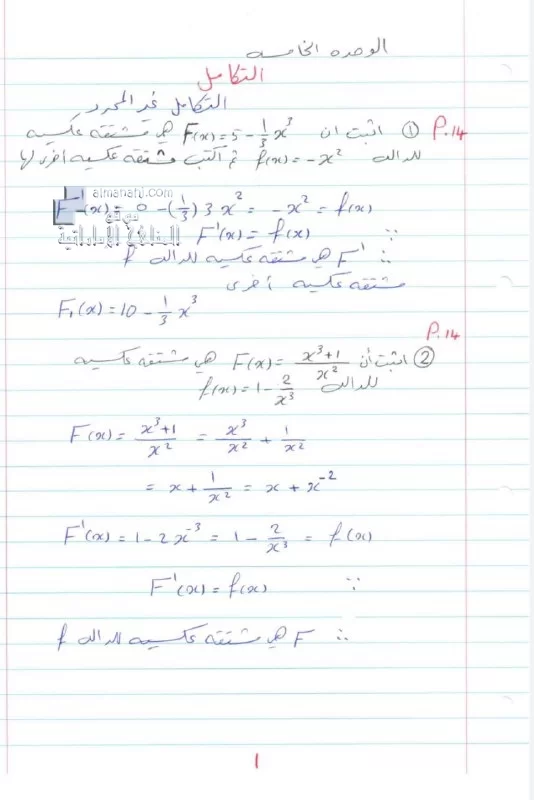 الوحده الخامسه
التكامل
التكامل غير المحدد
P.14 ① اثبت ان F(x) = 5 - 1/3 x³ هي مشتقه عكسيه
للداله f(x) = -x² ثم اكتب مشتقه عكسيه اخرى لها
almanahj.com
موقع
المناهج الإماراتية
F'(x) = 0 - (1/3) 3x² = -x² = f(x)
∵ F'(x) = f(x)
∴ F' هي مشتقه عكسيه للداله f
مشتقه عكسيه أخرى
F₁(x) = 10 - 1/3 x³
P.14
② اثبت أن F(x) = x³+1/x² هي مشتقه عكسيه
للداله f(x) = 1 - 2/x³
F(x) = x³+1/x² = x³/x² + 1/x²
= x + 1/x² = x + x⁻²
F'(x) = 1 - 2x⁻³ = 1 - 2/x³ = f(x)
∵ F'(x) = f(x)
∴ F هي مشتقه عكسيه للداله f
1